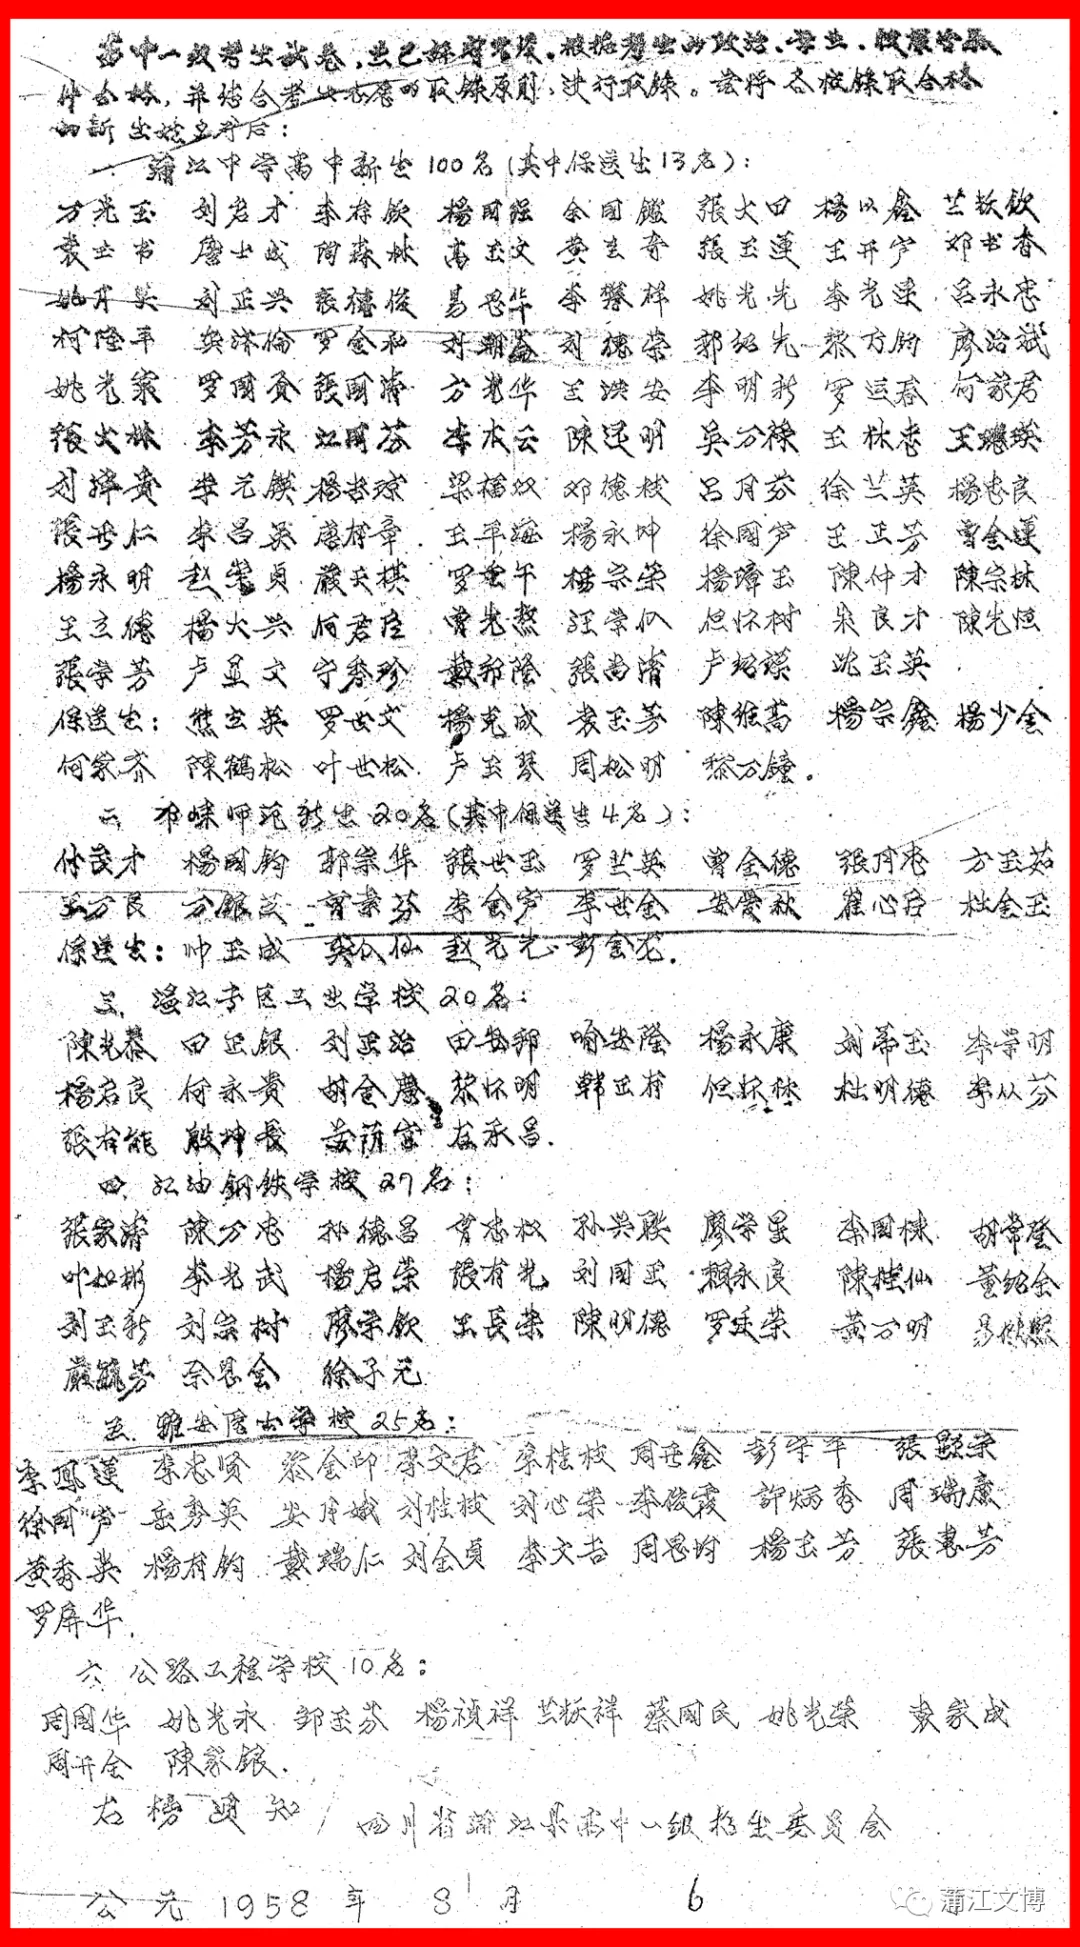 高中一级考生试卷，业已评阅完竣。根据考生的政治、学业、健康等条
件合格，并结合考生志愿的取錄原则，进行取錄。兹将各校錄取合格
的新生姓名列后：
一、蒲江中学高中新生100名（其中保送生13名）：
方光玉 刘君才 李存钦 楊国强 余国鑑 張大田 楊以鑫 兰敉钦
袁玉书 唐士成 陶森林 高玉文 黄生奇 張玉蓮 王开芦 邓书香
姚月英 刘正兴 張德俊 易思华 李攀祥 姚光先 李光建 呂永忠
柯隆平 龚济倫 罗金和 刘朝益 刘德荣 郭紹先 黎方钧 廖治斌
姚光家 罗国 張国清 方光华 王洪安 李明新 罗运春 何家君
張大林 李芳永 江国芬 李木云 陳廷明 吳万祿 王林忠 王瓊瑛
刘擇貴 李元鎂 楊 琼 梁福奴 邓德枝 呂月芬 徐兰英 楊忠良
張丹仁 李昌英 唐存章 王平海 楊永坤 徐国芦 王正芳 曾金蓮
楊永明 赵崇貞 嚴天棋 罗金午 楊宗荣 楊璋玉 陳仲才 陳宗林
王立德 楊大兴 何君臣 曾光熬 汪荣仈 但怀树 宋良才 陳光恒
張学芳 卢显文 宁秀珍 戴邦隆 張尚清 卢紹謨 沈玉英
保送生：熊玄英 罗世文 楊克成 袁玉芳 陳維高 楊宗鑫 楊少金
何家齐 陳鶴松 叶世松 卢玉琴 周松明 黎万鍾。
二、邛崍师范新生20名（其中保送生4名）：
付茂才 楊国鈞 郭宗华 張世玉 罗兰英 曾金德 張月忠 方玉茹
王万良 方銀芝 曾素芬 李金芦 李世金 安愛秋 崔心召 杜金玉
保送生：帅玉成 龚仈仙 赵光光 彭金花。
三、溫江专区工业学校20名：
陳光慕 田正银 刘正治 田安邦 喻安隆 楊永康 刘 玉 李崇明
楊君良 何永貴 胡金 黎怀明 韩正有 但怀林 杜明德 李从芬
張有能 殷坤長 安荫宣 左承昌.
四、江油鋼铁学校27名：
張家清 陳万忠 孙德昌 曾忠权 孙兴联 廖学星 李国棟 胡常登
叶如彬 李光武 楊启荣 張有光 刘国玉 賴永良 陳桂仙 董紹全
刘玉新 刘宗树 廖学钦 王長荣 陳明德 罗廷荣 黄万明 易 熙
嚴毓芳 余思全 徐子元
五、雅安医士学校25名：
李鳳蓮 李忠贤 黎金印 李文君 李桂枝 周丹鑫 彭学平 張顯荣
徐国芦 岳秀英 安月娥 刘桂枝 刘心荣 李俊霞 許炳秀 周瑞康
黄秀英 楊有鈞 戴瑞仁 刘全貞 李文吉 周思均 楊玉芳 張惠芳
罗屏华.
六、公路工程学校10名：
周国华 姚光永 邹玉芬 楊禎祥 兰敉祥 蔡国民 姚光荣 袁家成
周开全 陳家銀.
右榜通知 四川省蒲江县高中一级招生委員会
公元1958年8月6
蒲江文博